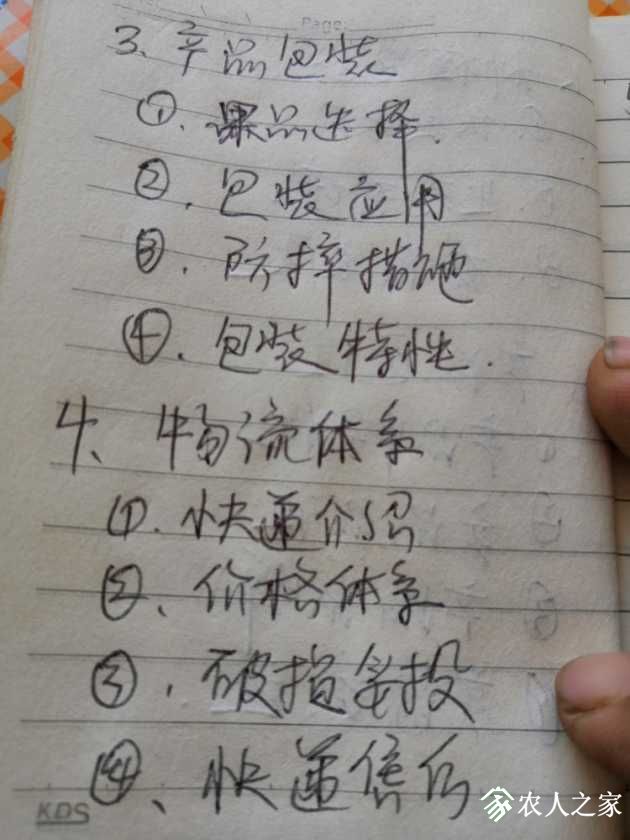 Page:
3、产品包装
①.果品选择.
②.包装应用
③.防摔措施
④.包装特性.
4、物流体系
①.快递介绍
②、价格体系
③、破损
④、快递信
KDS
农人之家